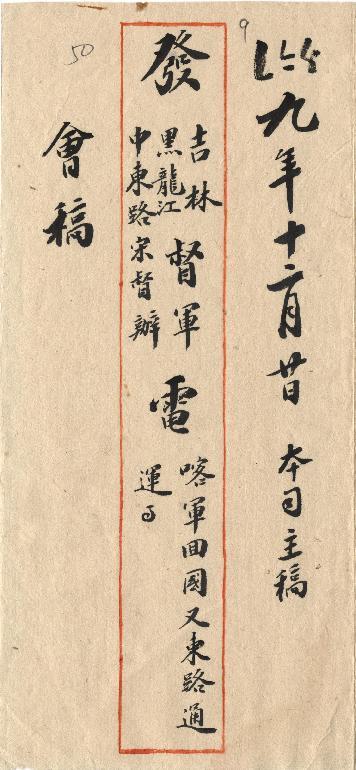 九年十二月廿日 本司主稿
9
發
吉林
黑龍江
督軍
中東路宋督辦
電
喀軍囬國又東路通
運
會稿
50